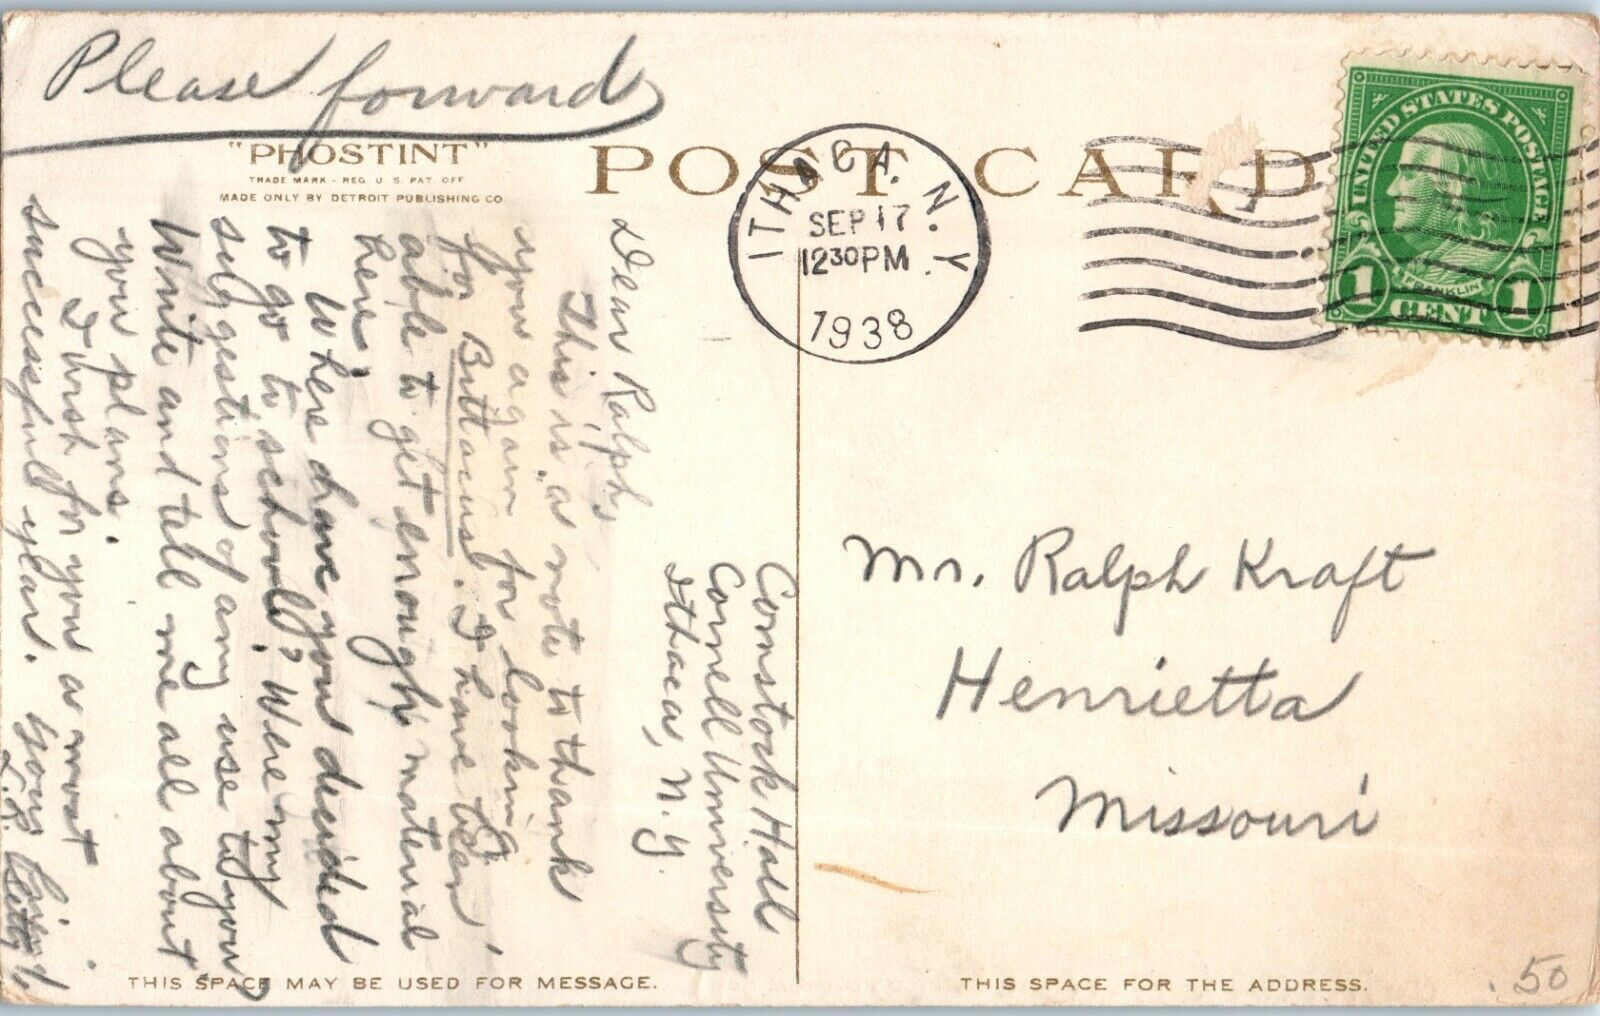 Please forward
"PHOSTINT"
TRADE MARK - REG. U. S. PAT. OFF
MADE ONLY BY DETROIT PUBLISHING CO.
POST CARD
ITHACA, N.Y.
SEP 17
12 30 PM
1938
UNITED STATES POSTAGE
FRANKLIN
1 CENT 1
Comstock Hall
Cornell University
Ithaca, N.Y.
Dear Ralph,
This is a note to thank
you again for looking
for Bittacus. I have been
able to get enough material
here.
Where have you decided
to go to school? Were my
suggestions of any use to you?
Write and tell me all about
your plans.
I wish for you a most
successful year. Your friend,
L.R.
Mr. Ralph Kraft
Henrietta
Missouri
THIS SPACE MAY BE USED FOR MESSAGE.
THIS SPACE FOR THE ADDRESS.
.50